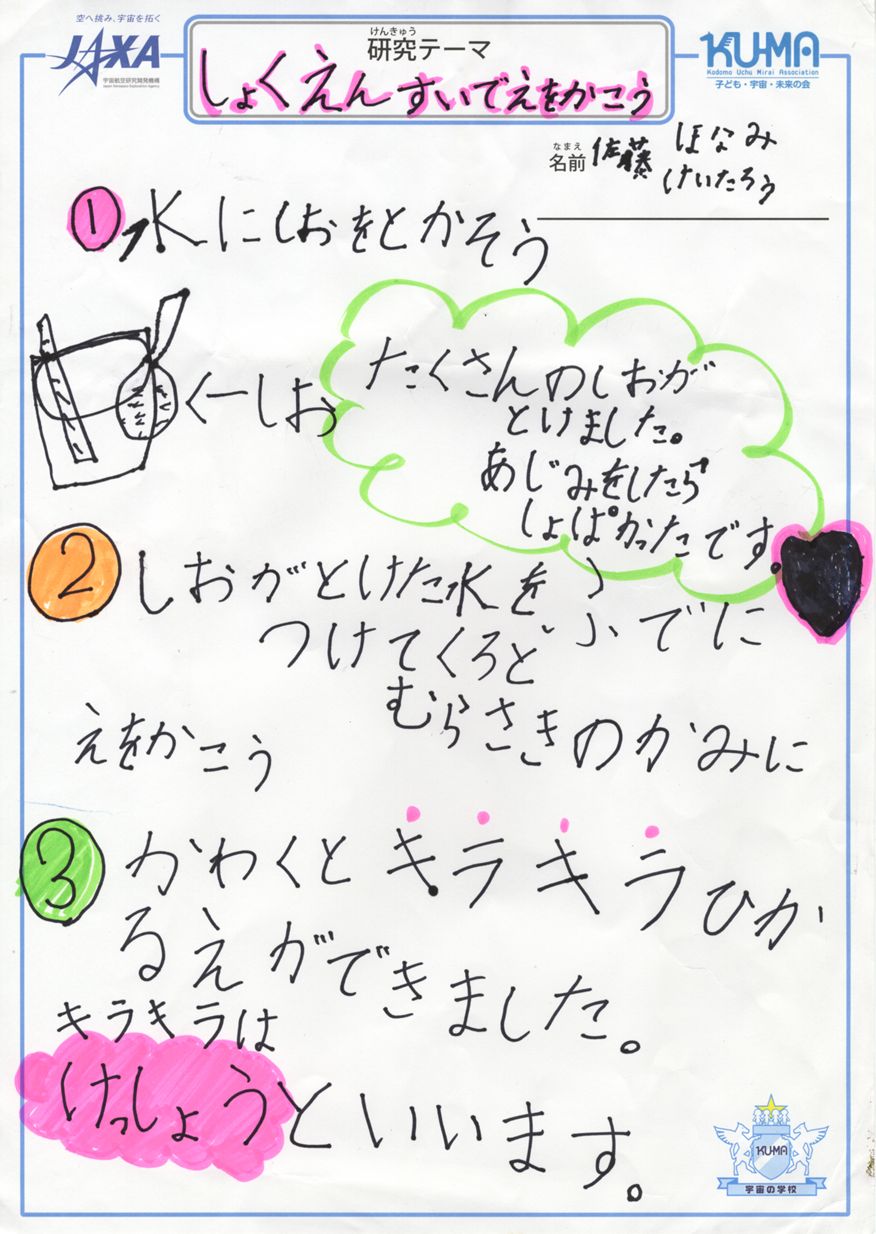 空へ挑み、宇宙を拓く
JAXA
宇宙航空研究開発機構
Japan Aerospace Exploration Agency
けんきゅう
研究テーマ
しょくえんすいでえをかこう
KU-MA
Kodomo Uchu Mirai Association
子ども・宇宙・未来の会
なまえ
名前 佐藤 ほなみ
けいたろう
① 水にしおをとかそう
くーしお
たくさんのしおが
とけました。
あじみをしたら
しょぱかったです。
② しおがとけた水を
ふでに
つけてくろと
むらさきのかみに
えをかこう
③ かわくとキラキラひか
るえができました。
キラキラは
けっしょうといいます。
KU-MA
宇宙の学校